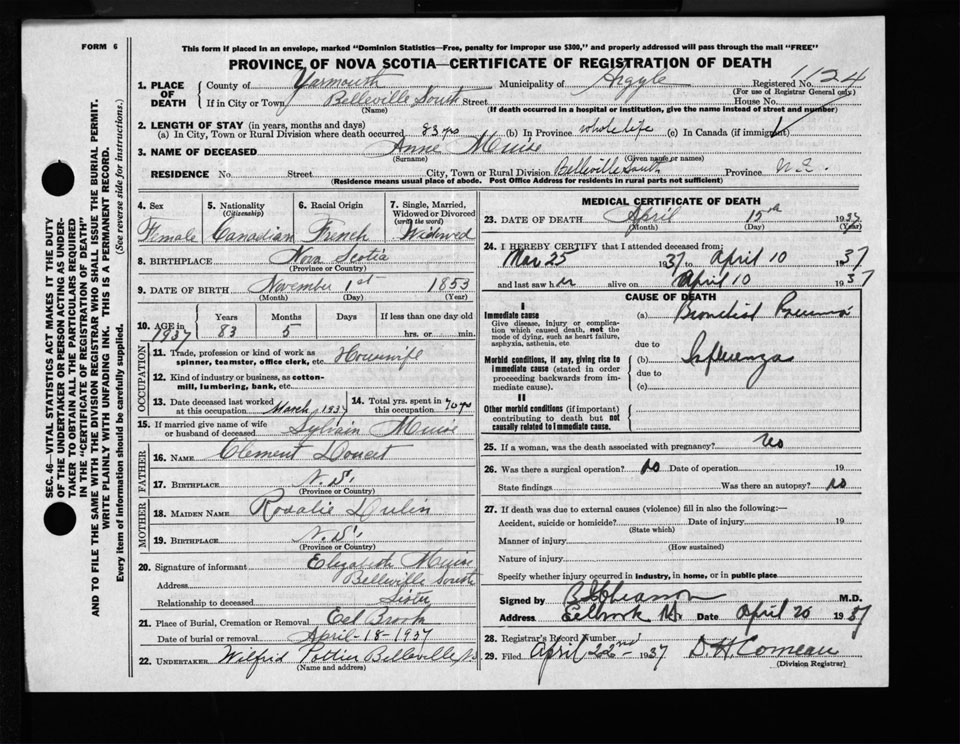 FORM 6
This form if placed in an envelope, marked "Dominion Statistics—Free, penalty for improper use $300," and properly addressed will pass through the mail "FREE"
PROVINCE OF NOVA SCOTIA—CERTIFICATE OF REGISTRATION OF DEATH
1. PLACE OF DEATH
County of Yarmouth Municipality of Argyle Registered No. 1124
(For use of Registrar General only)
If in City or Town Belleville South Street House No.
(Name) (If death occurred in a hospital or institution, give the name instead of street and number)
2. LENGTH OF STAY (in years, months and days)
(a) In City, Town or Rural Division where death occurred 83 yrs (b) In Province whole life (c) In Canada (if immigrant)
3. NAME OF DECEASED Anne Muise
(Surname) (Given name or names)
RESIDENCE No. Street City, Town or Rural Division Belleville South Province N.S.
(Residence means usual place of abode. Post Office Address for residents in rural parts not sufficient)
4. Sex 5. Nationality (Citizenship) 6. Racial Origin 7. Single, Married, Widowed or Divorced (write the word)
Female Canadian French Widowed
8. BIRTHPLACE Nova Scotia
(Province or Country)
9. DATE OF BIRTH November 1st 1853
(Month) (Day) (Year)
10. AGE in 1937 Years 83 Months 5 Days If less than one day old hrs. or min.
OCCUPATION
11. Trade, profession or kind of work as spinner, teamster, office clerk, etc. Housewife
12. Kind of industry or business, as cotton-mill, lumbering, bank, etc.
13. Date deceased last worked at this occupation March, 1937 14. Total yrs. spent in this occupation 70 yrs
15. If married give name of wife or husband of deceased Sylvain Muise
FATHER
16. NAME Clement Doucet
17. BIRTHPLACE N.S.
(Province or Country)
MOTHER
18. MAIDEN NAME Rosalie Dulin
19. BIRTHPLACE N.S.
(Province or Country)
20. Signature of informant Elizabeth Muise
Address Belleville South
Relationship to deceased Sister
21. Place of Burial, Cremation or Removal Eel Brook
Date of burial or removal April-18-1937
22. UNDERTAKER Wilfrid Pottier Belleville N.S.
(Name and address)
MEDICAL CERTIFICATE OF DEATH
23. DATE OF DEATH April 15th 1937
(Month) (Day) (Year)
24. I HEREBY CERTIFY that I attended deceased from:
Mar 25 1937 to April 10 1937
and last saw her alive on April 10 1937
CAUSE OF DEATH
I
Immediate cause (a) Bronchial Pneumonia
Give disease, injury or complication which caused death, not the mode of dying, such as heart failure, asphyxia, asthenia, etc.
due to
Morbid conditions, if any, giving rise to immediate cause (stated in order proceeding backwards from immediate cause).
(b) Influenza
due to
(c)
II
Other morbid conditions (if important) contributing to death but not causally related to immediate cause.
25. If a woman, was the death associated with pregnancy? No
26. Was there a surgical operation? No Date of operation 19
State findings Was there an autopsy? No
27. If death was due to external causes (violence) fill in also the following:—
Accident, suicide or homicide? Date of injury 19
(State which)
Manner of injury
(How sustained)
Nature of injury
Specify whether injury occurred in industry, in home, or in public place
Signed by M.D.
Address Eelbrook N.S. Date April 20 1937
28. Registrar's Record Number
29. Filed April 22nd 1937 D. H. Comeau
(Division Registrar)
SEC. 46—VITAL STATISTICS ACT MAKES IT THE DUTY
OF THE UNDERTAKER OR PERSON ACTING AS UNDERTAKER TO OBTAIN ALL THE PARTICULARS REQUIRED
IN THE "CERTIFICATE OF REGISTRATION OF DEATH"
AND TO FILE THE SAME WITH THE DIVISION REGISTRAR WHO SHALL ISSUE THE BURIAL PERMIT.
WRITE PLAINLY WITH UNFADING INK. THIS IS A PERMANENT RECORD.
Every item of information should be carefully supplied. (See reverse side for instructions.)